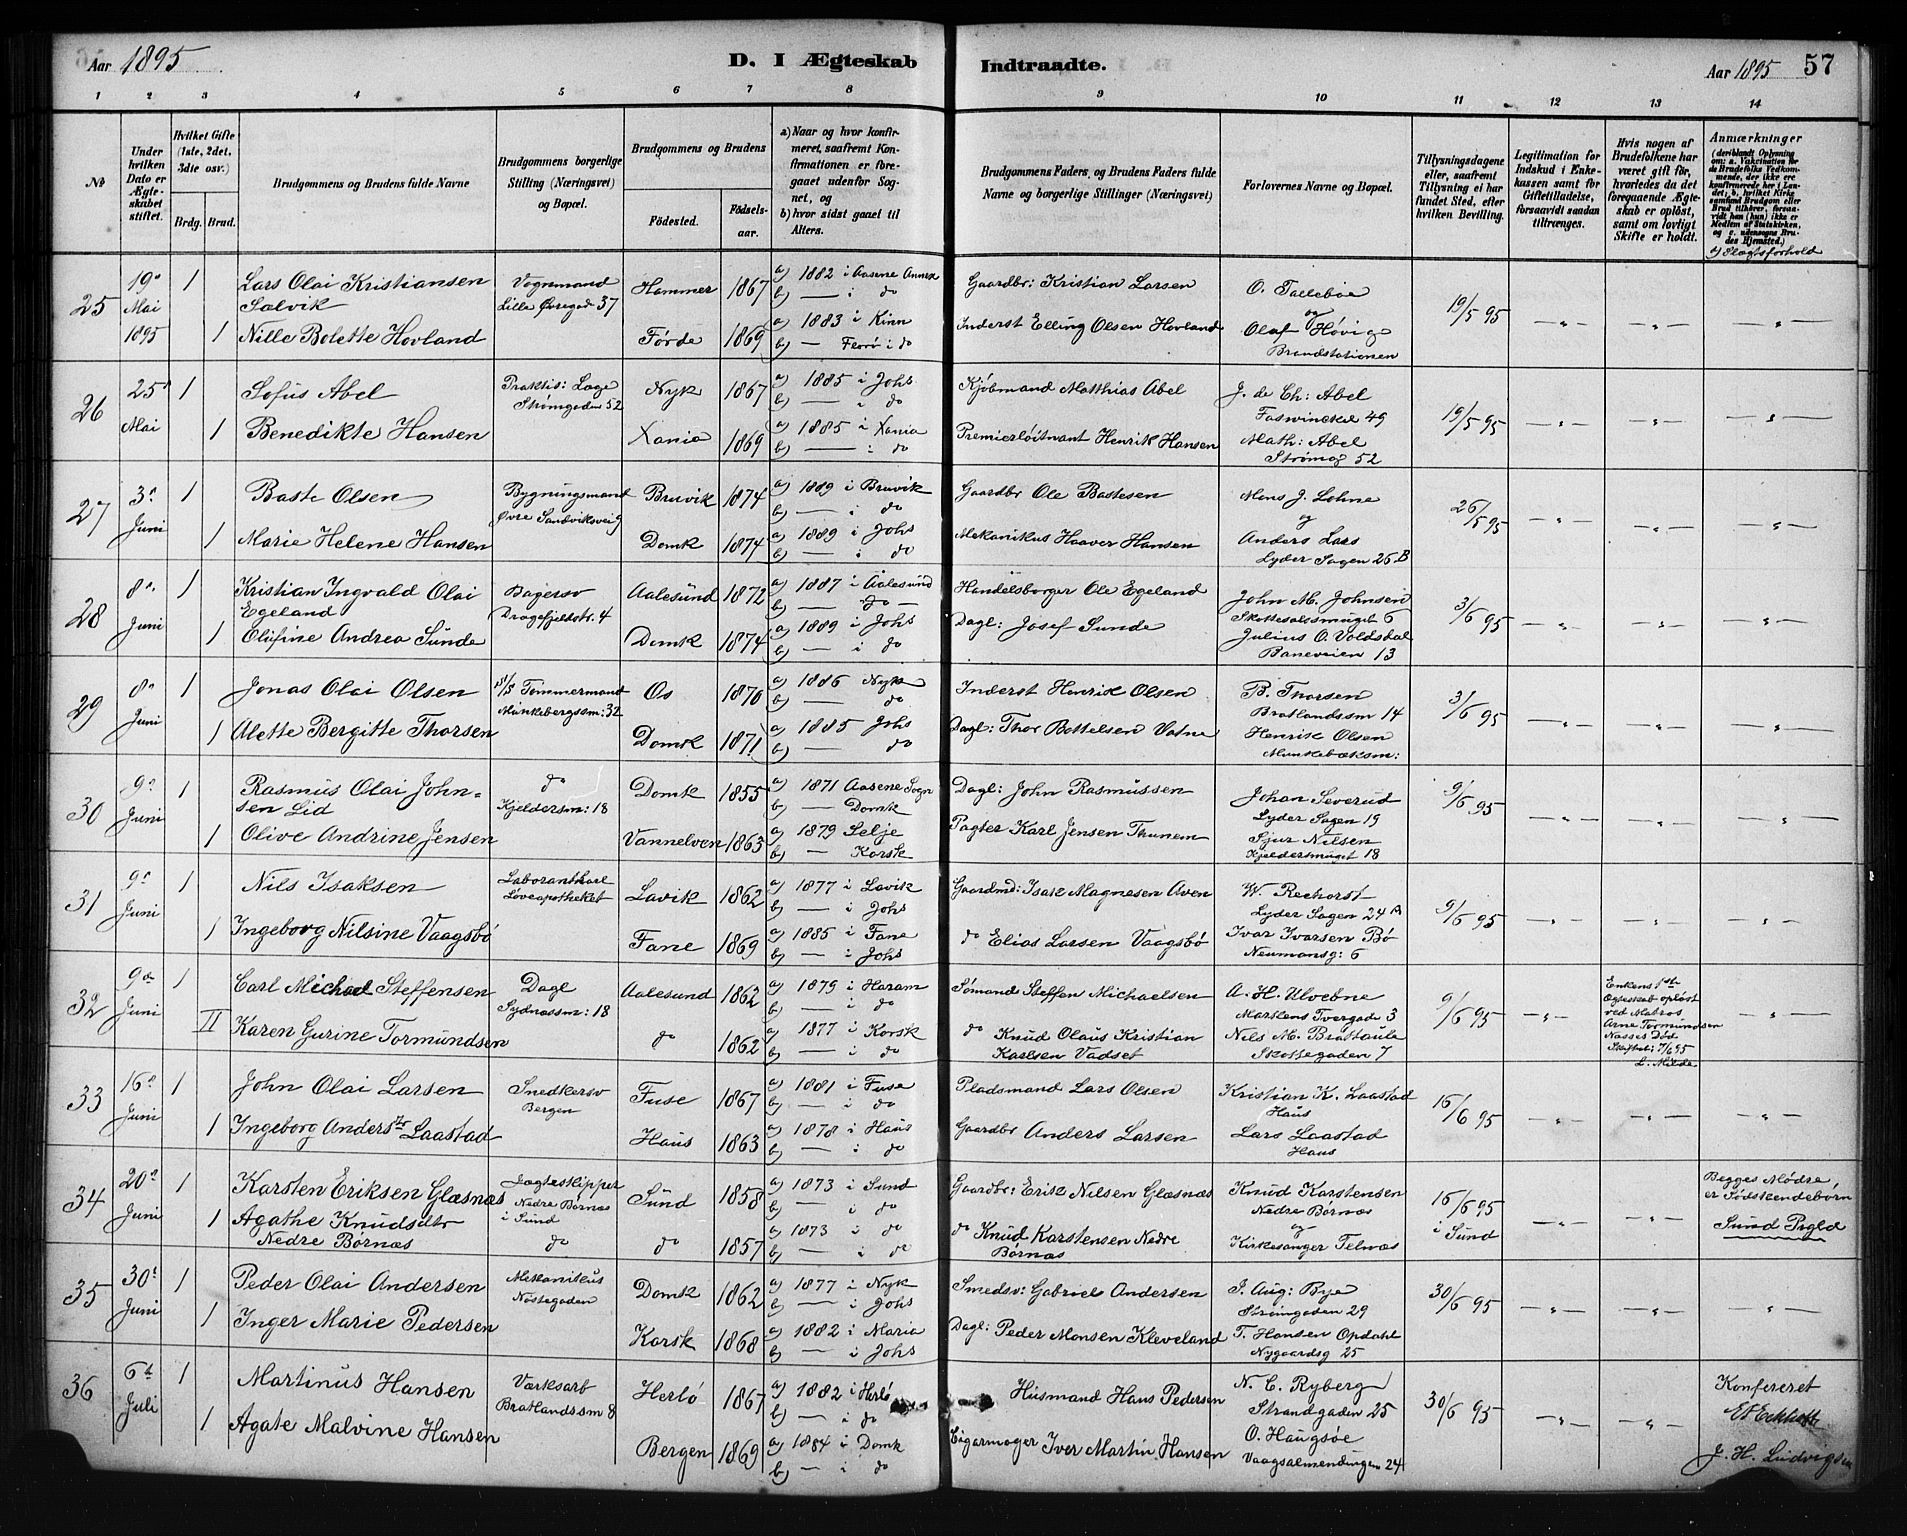 Aar 1895
D. I Ægteskab Indtraadte.
Aar 1895 57
1 2 3 4 5 6 7 8 9 10 11 12 13 14
№
Under hvilken Dato er Ægteskabet stiftet.
Hvilket Gifte (1ste, 2det, 3die osv.)
Brdg. Brud.
Brudgommens og Brudens fulde Navne
Brudgommens borgerlige Stilling (Næringsvei) og Bopæl.
Brudgommens og Brudens
Fødested.
Fødselsaar.
a) Naar og hvor konfirmeret, saafremt Konfirmationen er foregaaet udenfor Sognet, og
b) hvor sidst gaaet til Alters.
Brudgommens Faders og Brudens Faders fulde Navne og borgerlige Stillinger (Næringsvei)
Forlovernes Navne og Bopæl.
Tillysningsdagene eller, saafremt Tillysning ei har fundet Sted, efter hvilken Bevilling.
Legitimation for Indskud i Enkekassen samt for Giftetilladelse, forsaavidt saadan tiltrænges.
Hvis nogen af Brudefolkene har været gift før, hvorledes da det foregaaende Ægteskab er opløst, samt om lovligt Skifte er holdt.
Anmærkninger
(deriblandt Oplysning om: a. Vakcination for de Brudefolks Vedkommende, der ikke ere konfirmerede her i Landet; b. hvilket Kirkesamfund Brudgom eller Brud tilhører, forsaavidt han (hun) ikke er Medlem af Statskirken, og c. udensogns Brudes Hjemsted.)
Slægtsforhold
25 19 Mai 1895 1 Lars Olai Kristiansen Salvik Vognmand Lille Øvregade 37 Hammer 1867 a) 1882 i Aasene Annex b) — i do Gaardbr: Kristian Larsen O. Tallebøe og 19/5 95
1 Nille Bolette Hovland Førde 1869 a) 1883 i Kinn b) — Florø i do Inderst Elling Olsen Hovland Olaf Høvig Brandstationen
26 25 Mai 1 Sofus Abel Praktis: Læge Strømgaden 52 Nyk 1867 a) 1885 i Johs b) — i do Kjøbmand Matthias Abel J. de Ch: Abel Foswinckel 49 19/5 95
1 Benedikte Hansen Xania 1869 a) 1885 i Xania b) — i do Premierløitnant Henrik Hansen Math: Abel Strømg 52
27 3 Juni 1 Baste Olsen Bygningsmand Øvre Sandviksvei 9 Bruvik 1874 a) 1889 i Bruvik b) — i do Gaardbr Ole Bastesen Mons J. Lohne og 26/5 95
1 Marie Helene Hansen Domk 1874 a) 1889 i Johs b) — i do Mekanikus Haaver Hansen Anders Lars Lyder Sagen 26 B
28 8 Juni 1 Kristian Ingvald Olai Egeland Bagersv Dragefjeldstr. 4 Aalesund 1872 a) 1887 i Aalesund b) — do — Handelsborger Ole Egeland John M. Johnsen Skottesalsmuget 6 3/6 95
1 Olufine Andrea Sunde Domk 1874 a) 1889 i Johs b) — i do Dagl: Josef Sunde Julius O. Voldsdal Baneveien 13
29 8 Juni 1 Jonas Olai Olsen Tømmermand Munkebergssm: 32 Os 1870 a) 1886 Nyk b) — do Inderst Henrik Olsen B. Thorsen Bratlandssm 14 3/6 95
1 Alette Bergitte Thorsen Domk 1871 a) 1885 Johs b) — do Dagl: Thor Bottelsen Vatne Henrik Olsen Munkebæksm:
30 9 Juni 1 Rasmus Olai Johnsen Lid do Kjeldersm: 18 Domk 1855 a) 1871 Aasene Sogn b) — Domk Dagl: John Rasmussen Johan Severud Lyder Sagen 19 9/6 95
1 Olive Andrine Jensen Vannelven 1863 a) 1879 Selje b) — Korsk Pagter Karl Jensen Thunem Sjur Nilsen Kjeldersmuget 18
31 9 Juni 1 Nils Isaksen Laborantkarl Løveapotheket Lavik 1862 a) 1877 i Lavik b) — i Johs Gaardmd: Isak Magnesen Aven W. Rechorst Lyder Sagen 24 A 9/6 95
1 Ingeborg Nilsine Vaagsbø Fane 1869 a) 1885 i Fane b) — i Johs do Elias Larsen Vaagsbø Ivar Ivarsen Bø Neumansg: 6
32 9 Juni 1 Carl Michael Steffensen Dagl Sydnæssm: 18 Aalesund 1862 a) 1879 i Haram b) — i do Sømand Steffen Michaelsen A. H. Ulvebne Martens Tvergade 3 9/6 95 Enkens 1ste Ægteskab opløst ved Matros Arne Tormundsen Nasses Død Skiftet: 7/6 95 L. Milde
II Karen Gurine Tormundsen do 1862 a) 1877 i Korsk b) — i do do Knud Olaus Kristian Karlsen Vadset Nils M. Brattaule Skottegaden 7
33 16 Juni 1 John Olai Larsen Snedkersv Bergen Fuse 1867 a) 1881 i Fuse b) — i do Pladsmand Lars Olsen Kristian K. Laastad Haus 16/6 95
1 Ingeborg Andersdtr Laastad Haus 1863 a) 1878 i Haus b) — i do Gaardbr Anders Larsen Lars Laastad Haus
34 20 Juni 1 Karsten Eriksen Glæsnæs Jagteskipper Nedre Børnæs i Sund Sund 1858 a) 1873 i Sund b) — i do Gaardbr: Erik Nilsen Glæsnæs Knud Karstensen Nedre Børnæs og 16/6 95 i Sund Begges Mødre er Sødskendebørn Sund Prgld
1 Agathe Knudsdtr Nedre Børnæs do do 1857 a) 1873 i do b) — i do do Knud Karstensen Nedre Børnæs Kirkesanger Telnæs
35 30 Juni 1 Peder Olai Andersen Mekanikus Nøstegaden Domk 1862 a) 1877 i Nyk b) — i Johs Smedsv: Gabriel Andersen J. Aug: Bye Strømgaden 29 30/6 95
1 Inger Marie Pedersen Korsk 1868 a) 1882 i Maria b) — i Johs Dagl: Peder Monsen Kleveland T. Hansen Opdahl Nygaardsg 25
36 6 Juli 1 Martinus Hansen Værksarb Bratlandssm 8 Herlø 1867 a) 1882 i Herlø b) — i do Husmand Hans Pedersen N. C. Ryberg Strandgaden 25 30/6 95 Konfereret
1 Agate Malvine Hansen Bergen 1869 a) 1884 i Domk b) — i do Cigarmager Iver Martin Hansen O. Haugsøe Vaagsalmendingen 24 J. H. Ludvigsen